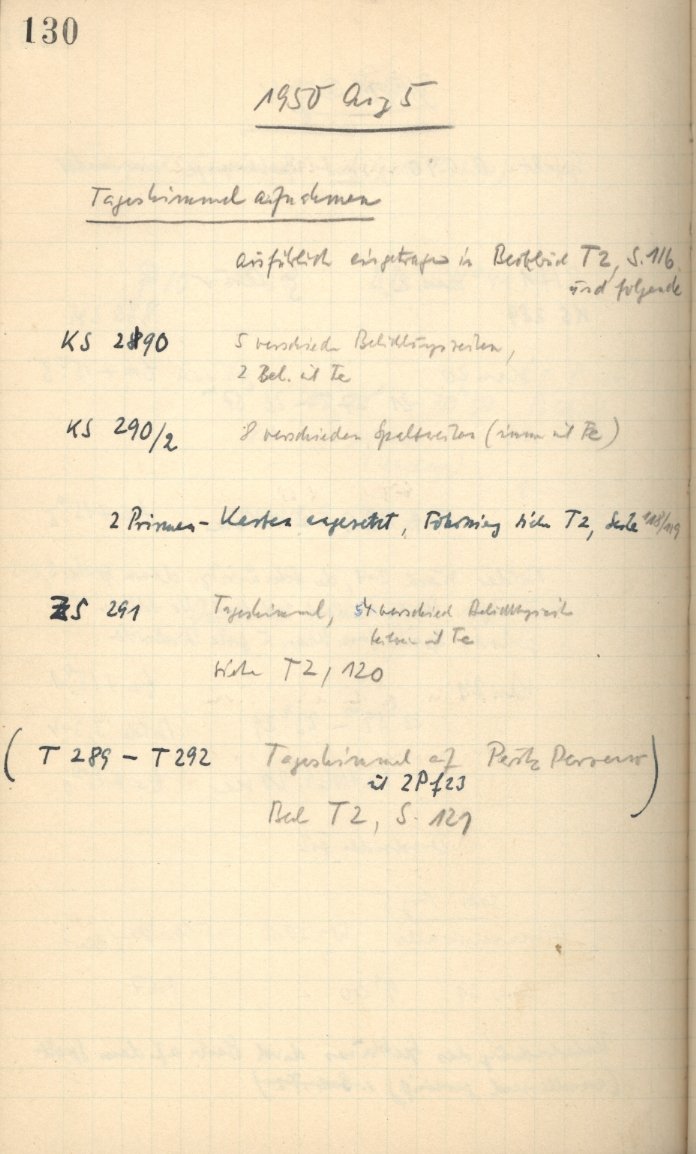 130
1950 Aug 5
Tageshimmel aufnahmen
ausführlich eingetragen in Beobbuch T2, S. 116
und folgende
KS 290 5 verschiedene Belichtungszeiten,
2 Bel. mit Fe
KS 290/2 8 verschiedene Spaltweiten (immer mit Fe)
2 Prismen-Kasten angesetzt, Fokussierung siehe T2, Seite 118/119
ZS 291 Tageshimmel, 4 verschied Belichtungszeiten
mit Fe
siehe T2, 120
( T 289 - T 292 Tageshimmel auf Perutz )
mit 2Pf23
Beob T2, S. 121